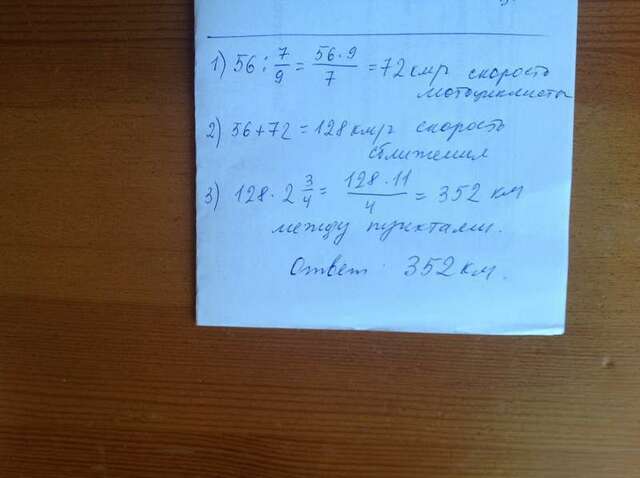 1) 56 : 7/9 = 56·9/7 = 72 км/г скорость
мотоциклиста
2) 56+72 = 128 км/г скорость
сближения
3) 128 · 2 3/4 = 128·11/4 = 352 км
между пунктами.
Ответ: 352 км.